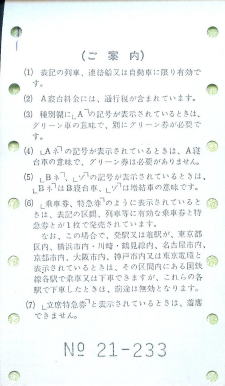 (ご案内)
(1) 表記の列車、連絡船又は自動車に限り有効で
す。
(2) A寝台料金には、通行税が含まれています。
(3) 種別欄に「A」の記号が表示されているときは、
グリーン車の意味で、別にグリーン券が必要で
す。
(4) 「Aネ」の記号が表示されているときは、A寝
台車の意味で、グリーン券は必要がありません。
(5) 「Bネ」、「ゾ」の記号が表示されているときは、
「Bネ」はB寝台車、「ゾ」は増結車の意味です。
(6) 「乗車券、特急券」のように表示されていると
きは、表記の区間、列車等に有効な乗車券と特
急券とが1枚で発売されています。
なお、この場合で、発駅又は着駅が、東京都
区内、横浜市内・川崎・鶴見線内、名古屋市内、
京都市内、大阪市内、神戸市内又は東京電環と
表示されているときは、その区間内にある国鉄
線各駅で乗車又は下車できますが、これらの各
駅で下車したときは、前途は無効となります。
(7) 「立席特急券」と表示されているときは、着席
できません。
№ 21-233